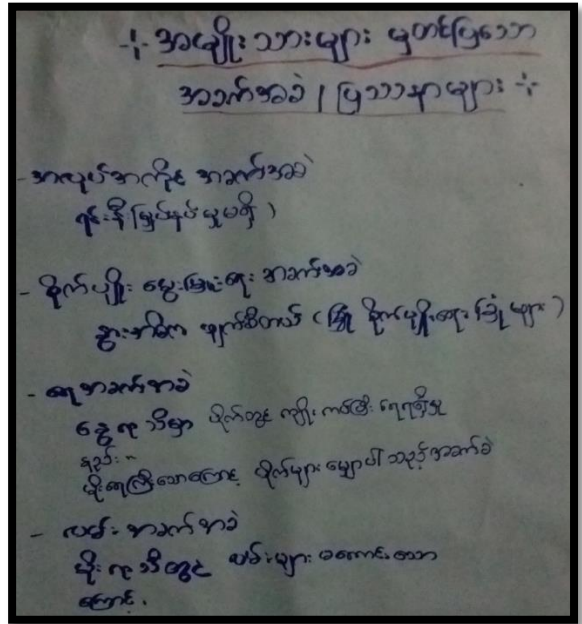 -:- အမျိုးသားများ မှတင်ပြသော
အခက်အခဲ / ပြဿနာများ -:-
- အလုပ်အကိုင် အခက်အခဲ
ရင်းနှီးမြှပ်နှပ်မှုမရှိ )
- စိုက်ပျိုး မွေးမြူရေး အခက်အခဲ
နွားအဓိက ဖျက်ဆီတယ် ( ခြံ စိုက်ပျိုးရေး ခြံများ )
- ရေအခက်အခဲ
နွေရာသီမှာ ပိုက်တွင် ကျိုး ရေရရှိမှု
နည်း။
မိုးရေကြီးသောကြောင့် ပိုက်များ မျှောပါ သည့်အခက်ခဲ
- လမ်းအခက်အခဲ
မိုးရာသီတွင် လမ်းများ မကောင်းသော
ကြောင့်.